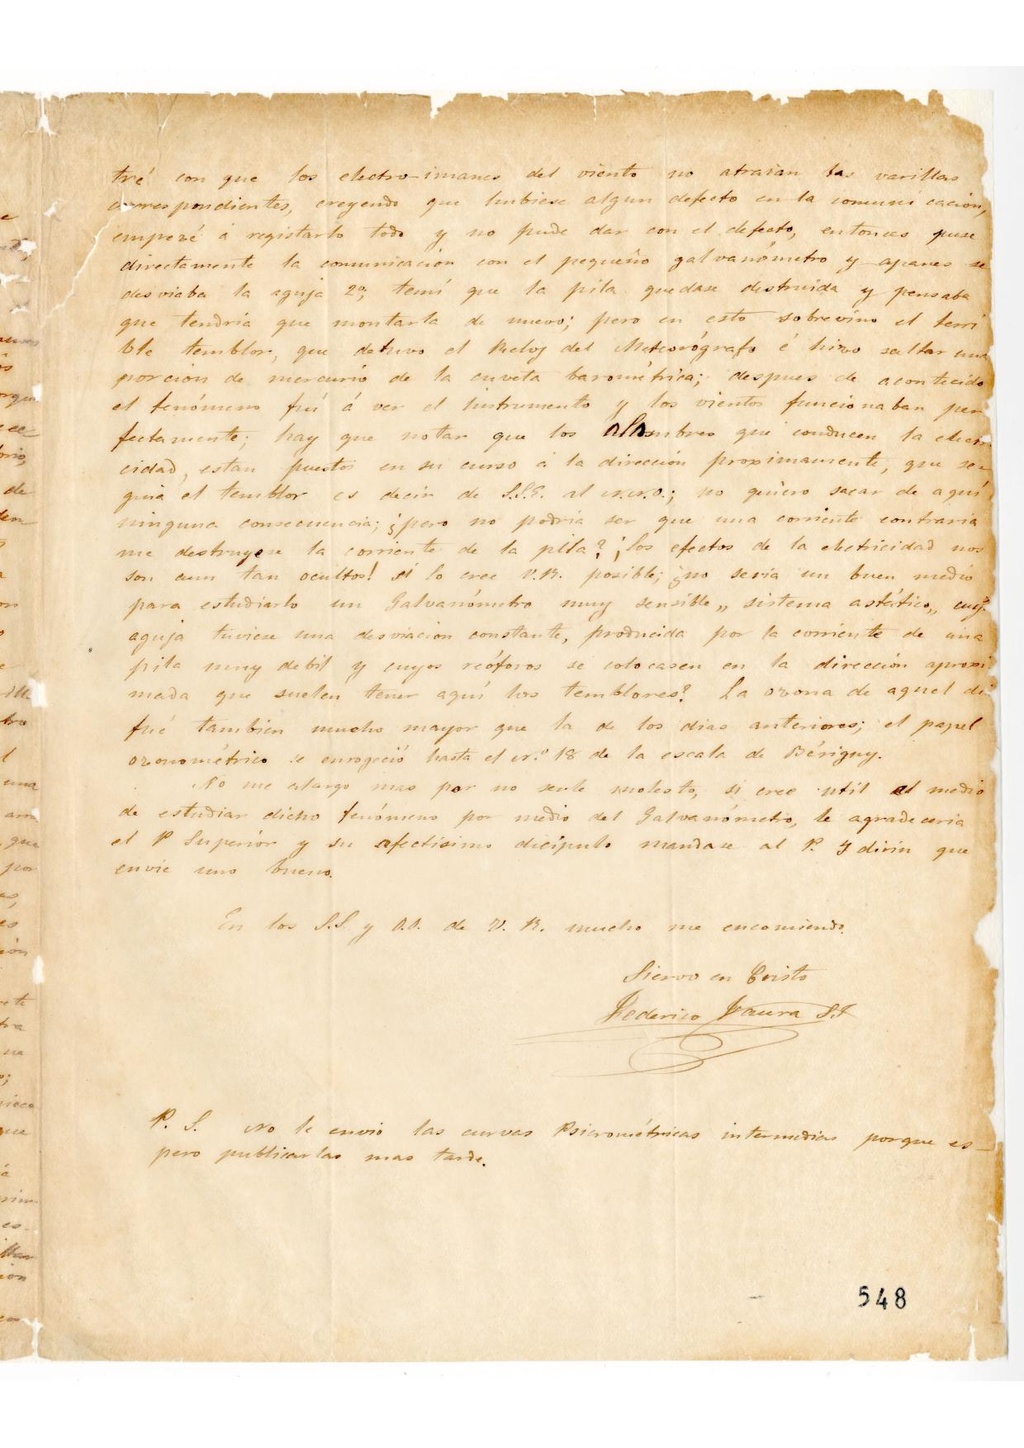 tré con que los electro-imanes del viento no atraian las varillas
correspondientes, creyendo que hubiese algun defecto en la comunicación,
empezé á registarlo todo y no pude dar con el defecto, entonces puse
directamente la comunicación con el pequeño galvanómetro y apanes se
desviaba la aguja 2º, temí que la pila quedase destruida y pensaba
que tendria que montarla de nuevo; pero en esto sobrevino el terri
ble temblor, que detuvo el Reloj del Meteorógrafo é hizo saltar una
porcion de mercurio de la cuveta barométrica; despues de acontecido
el fenómeno fuí á ver el Instrumento y los vientos funcionaban per
fectamente; hay que notar que los alambres que conducen la electri
cidad, estan puestos en su curso á la dirección proximamente, que se-
guia el temblor es decir de S.S.E. al N.N.O.; no quiero sacar de aquí
ninguna consecuencia; ¿pero no podria ser que una corriente contraria
me destruyese la corriente de la pila? ¡los efectos de la electricidad nos
son aun tan ocultos! si lo cree V.R. posible; ¿no seria un buen medio
para estudiarlo un Galvanómetro muy sensible „ sistema astático„ cuya
aguja tuviese una desviacion constante, producida por la corriente de una
pila muy debil y cuyos reóforos se colocasen en la dirección aproxi
mada que suelen tener aquí los temblores? La ozona de aquel dia
fué tambien mucho mayor que la de los dias anteriores; el papel
ozonométrico se enrogeció hasta el nº 18 de la escala de Bérigny.
No me alargo mas por no serle molesto, si cree util el medio
de estudiar dicho fenómeno por medio del Galvanómetro, le agradeceria
el P Superior y su afectísimo dicípulo mandase al P. Ydirin que
envie uno bueno.
En los S.S. y O.O. de V. R. mucho me encomiendo.
Siervo en Cristo
Federico Faura S.J
P. S. No le envió las curvas Psicrométricas intermedias porque es-
pero publicarlas mas tarde.
548